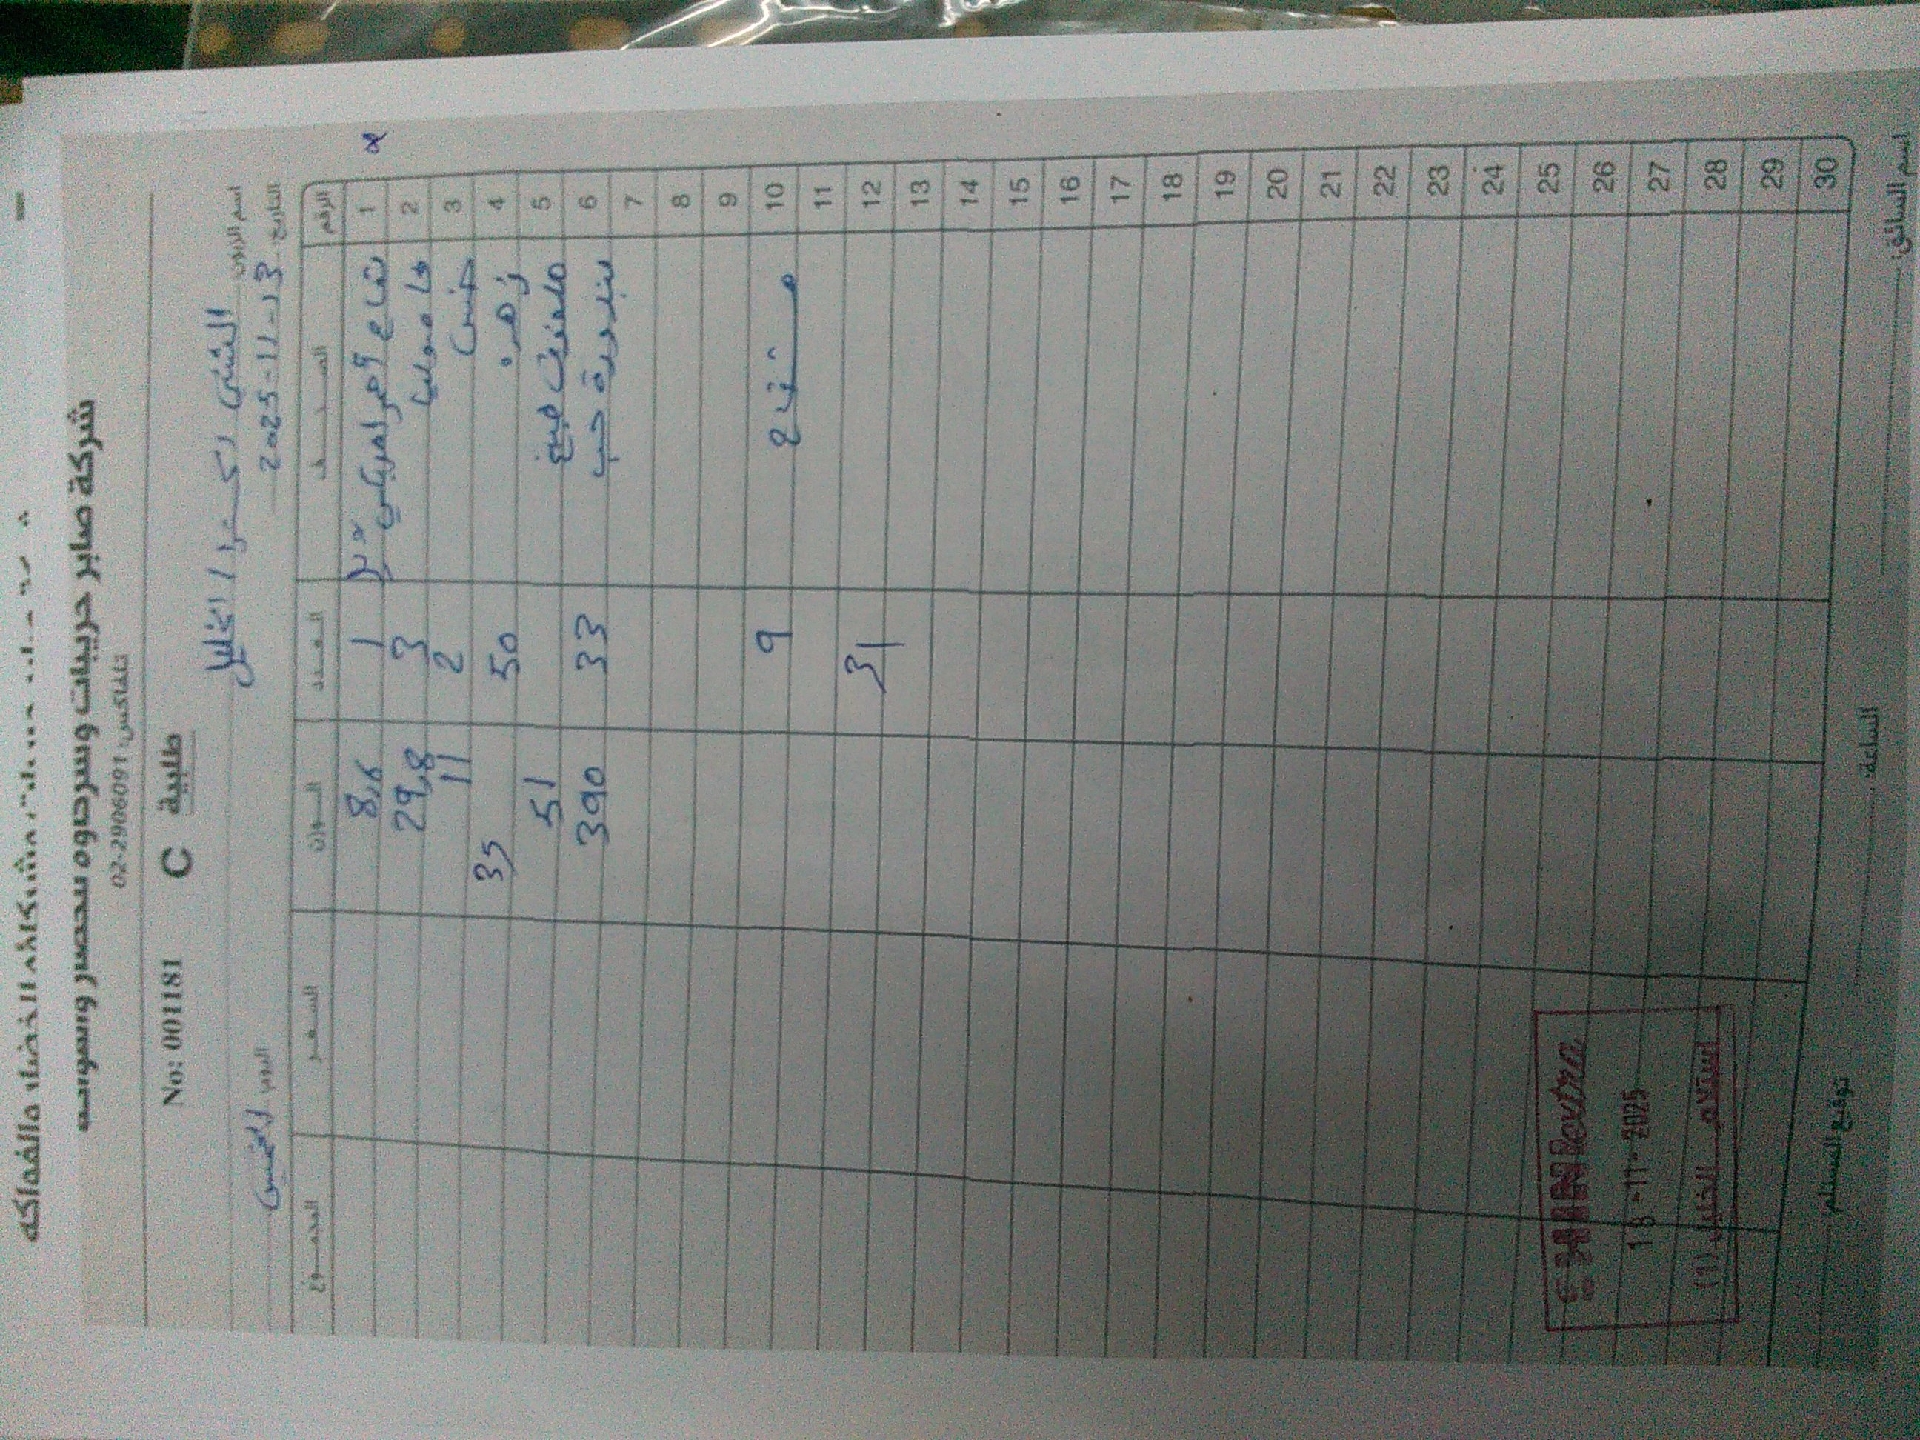 شركة صابر حريبات وسردوه سحصر وسويسه
تلفاكس: 02-2906091
No: 001181 C طلبية
اسم الزبون الشني اكسترا الخليل
التاريخ: 2025-11-13 اليوم الخميس
الرقم الصنف العدد الوزن السعر المجموع
1 تفاح احمر امريكي 1 8,6
2 3 29,8
3 خس 2 11
4 زهره 50 35
5 ملفوف 51
6 بندورة حب 33 390
7
8
9
10 9
11
12 31
13
14
15
16
17
18
19
20
21
22
23
24
25
26
27
28
29
30
SHINI extra
18-11-2025
استلام الخليل (1)
اسم السائق: الساعة: توقيع المستلم